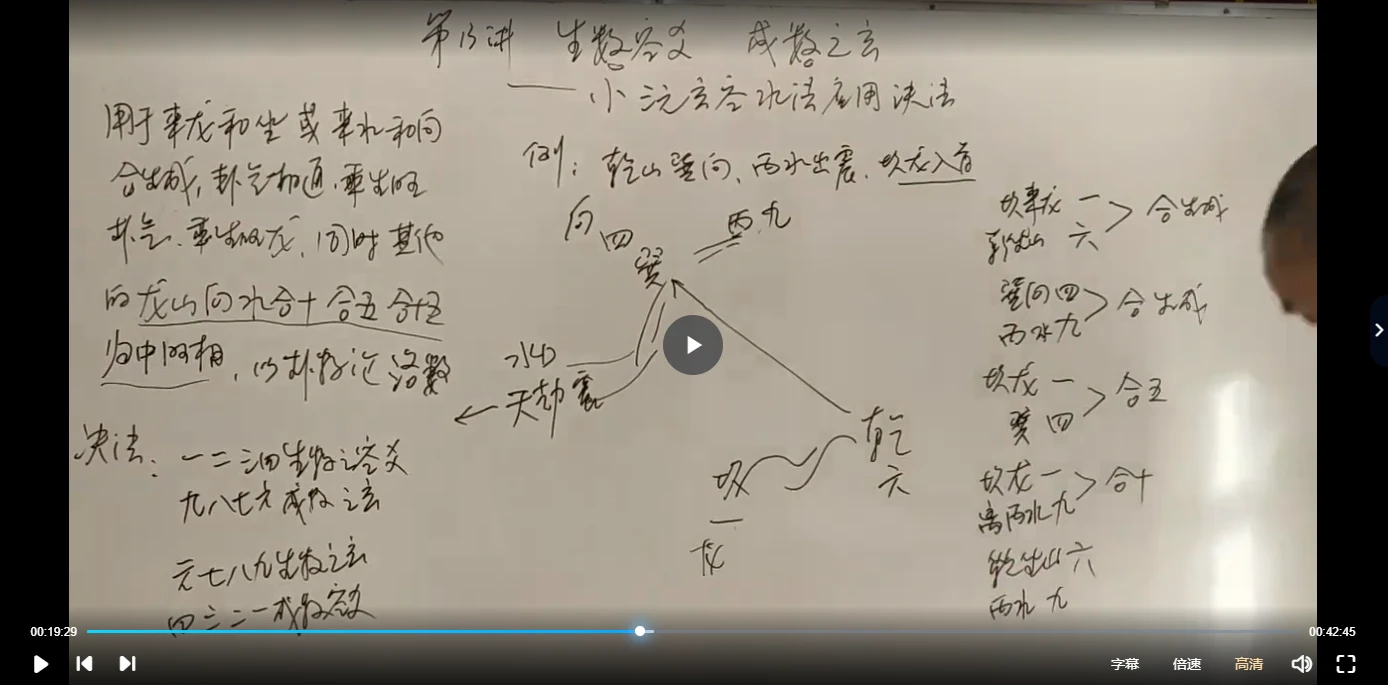 第13讲 生数容爻 成数之玄
—— 小三元玄空水法应用决法
用于来龙和坐或来水和向
合生成,卦气相通,乘生旺
卦气、乘生旺龙,同时其他
的龙山向水合十合五合十五
为中阳相,以卦数论洛数
决法:
一二三四生数之容爻
九八七六成数之玄
六七八九生数之玄
四三二一成数容爻
例:乾山巽向、丙水出震、坎龙入首
向 四 巽
丙 九
水口
天劫 震
乾 六
坎 一 龙
坎来龙 一
乾坐山 六
合生成
巽向 四
丙水 九
合生成
坎龙 一
巽 四
合五
坎龙 一
离丙水 九
合十
乾坐山 六
丙水 九
00:19:29
00:42:45
字幕 倍速 高清